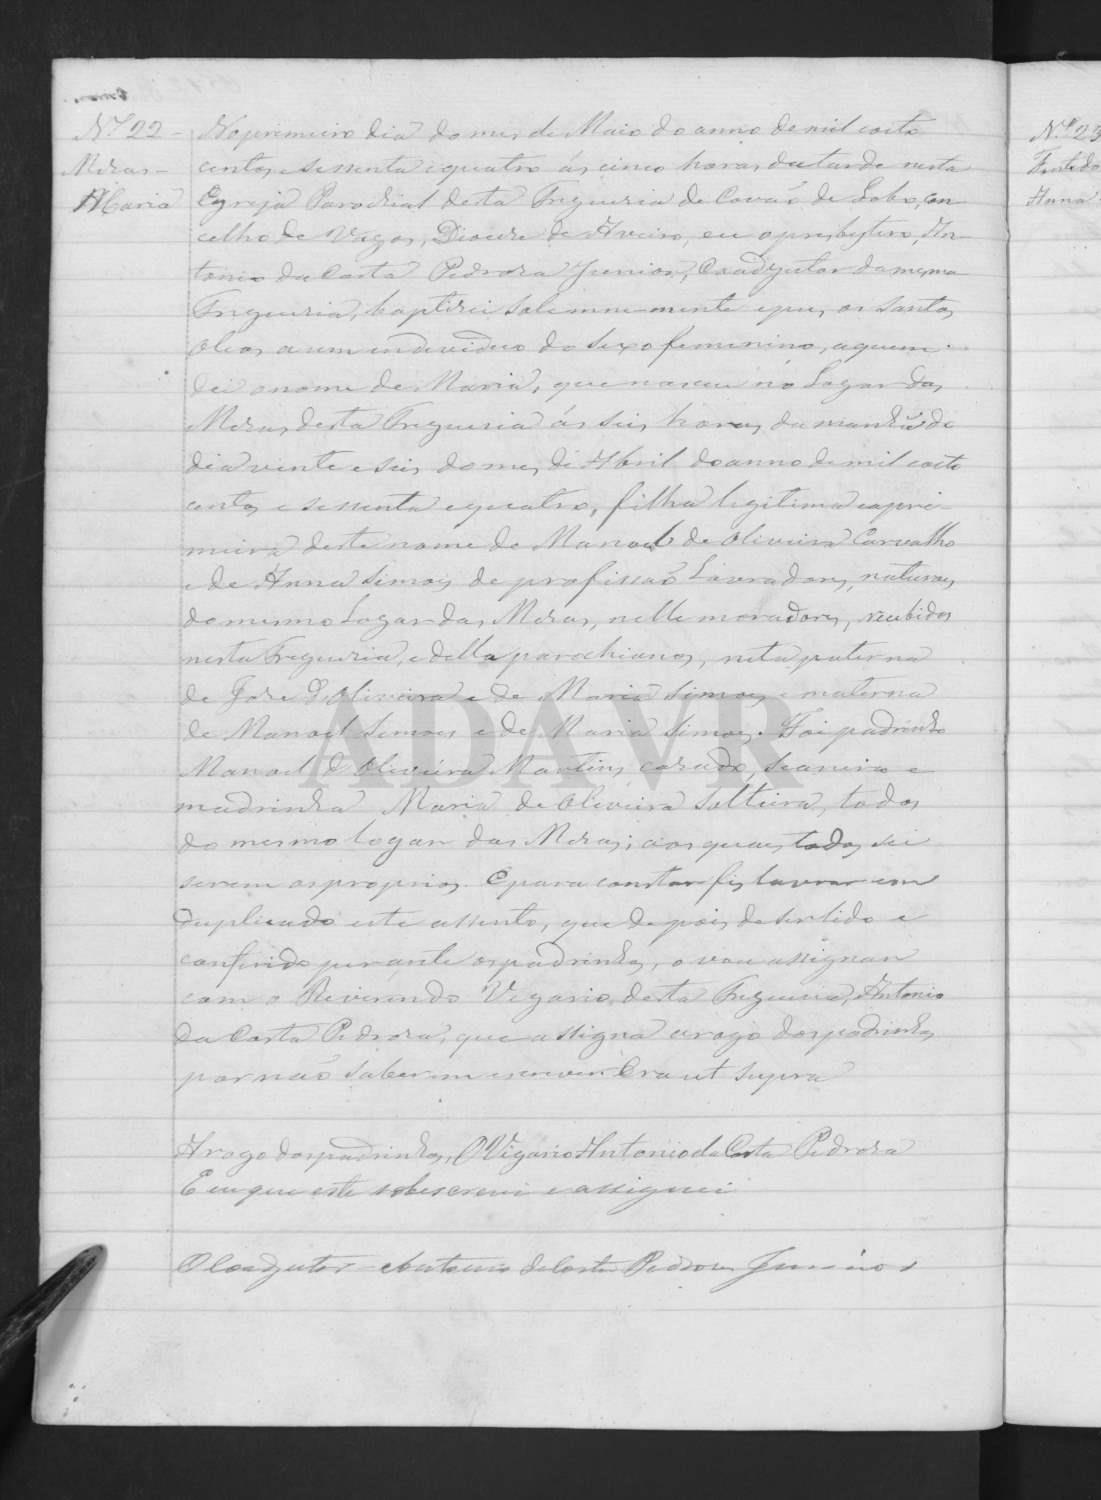 Nº 22
Mezas
Maria
No primeiro dia do mes de Maio do anno de mil oito
centos e sessenta e quatro ás cinco horas da tarde nesta
Egreja Parochial desta Freguezia de Covaõ de Lobo, con
celho de Vagos, Diocese de Aveiro, eu o presbytero, An-
tonio da Costa Pedroza Junior, Coadjutor da mesma
Freguezia, baptizei solemnemente e puz os Santos
Oleos a um individuo do sexo femenino, a quem
dei o nome de Maria, que nasceu no Logar das
Mezas desta Freguezia ás seis horas da manhã do
dia vinte e seis do mes de Abril do anno de mil oito
centos e sessenta e quatro, filha legitima e a pri-
meira deste nome de Manoel de Oliveira Carvalho
e de Anna Simoes de profissaõ Lavradores, naturaes
do mesmo Logar das Mezas, nelle moradores, recebidos
nesta Freguezia, e della parochianos, neta paterna
de Jose d'Oliveira e de Maria Simoes e materna
de Manoel Simoes e de Maria Simoes. Foi padrinho
Manoel d'Oliveira Martins casado, Seareiro e
madrinha Maria de Oliveira Solteira, todos
do mesmo logar das Mezas; aos quaes todos sei
serem os proprios. E para constar fiz lavrar em
duplicado este assento, que de pois de ser lido e
conferido perante os padrinhos, o vou assignar
com o Reverendo Vigario, desta Freguezia, Antonio
da Costa Pedroza, que assigna a rogo dos padrinhos,
por naõ saberem escrever Era ut supra
A rogo dos padrinhos, O Vigario Antonio da Costa Pedroza
E eu que este sobescrevi e assignei
O Coadjutor Antonio da Costa Pedroza Junior
N.º 23
Anna
ADAVR